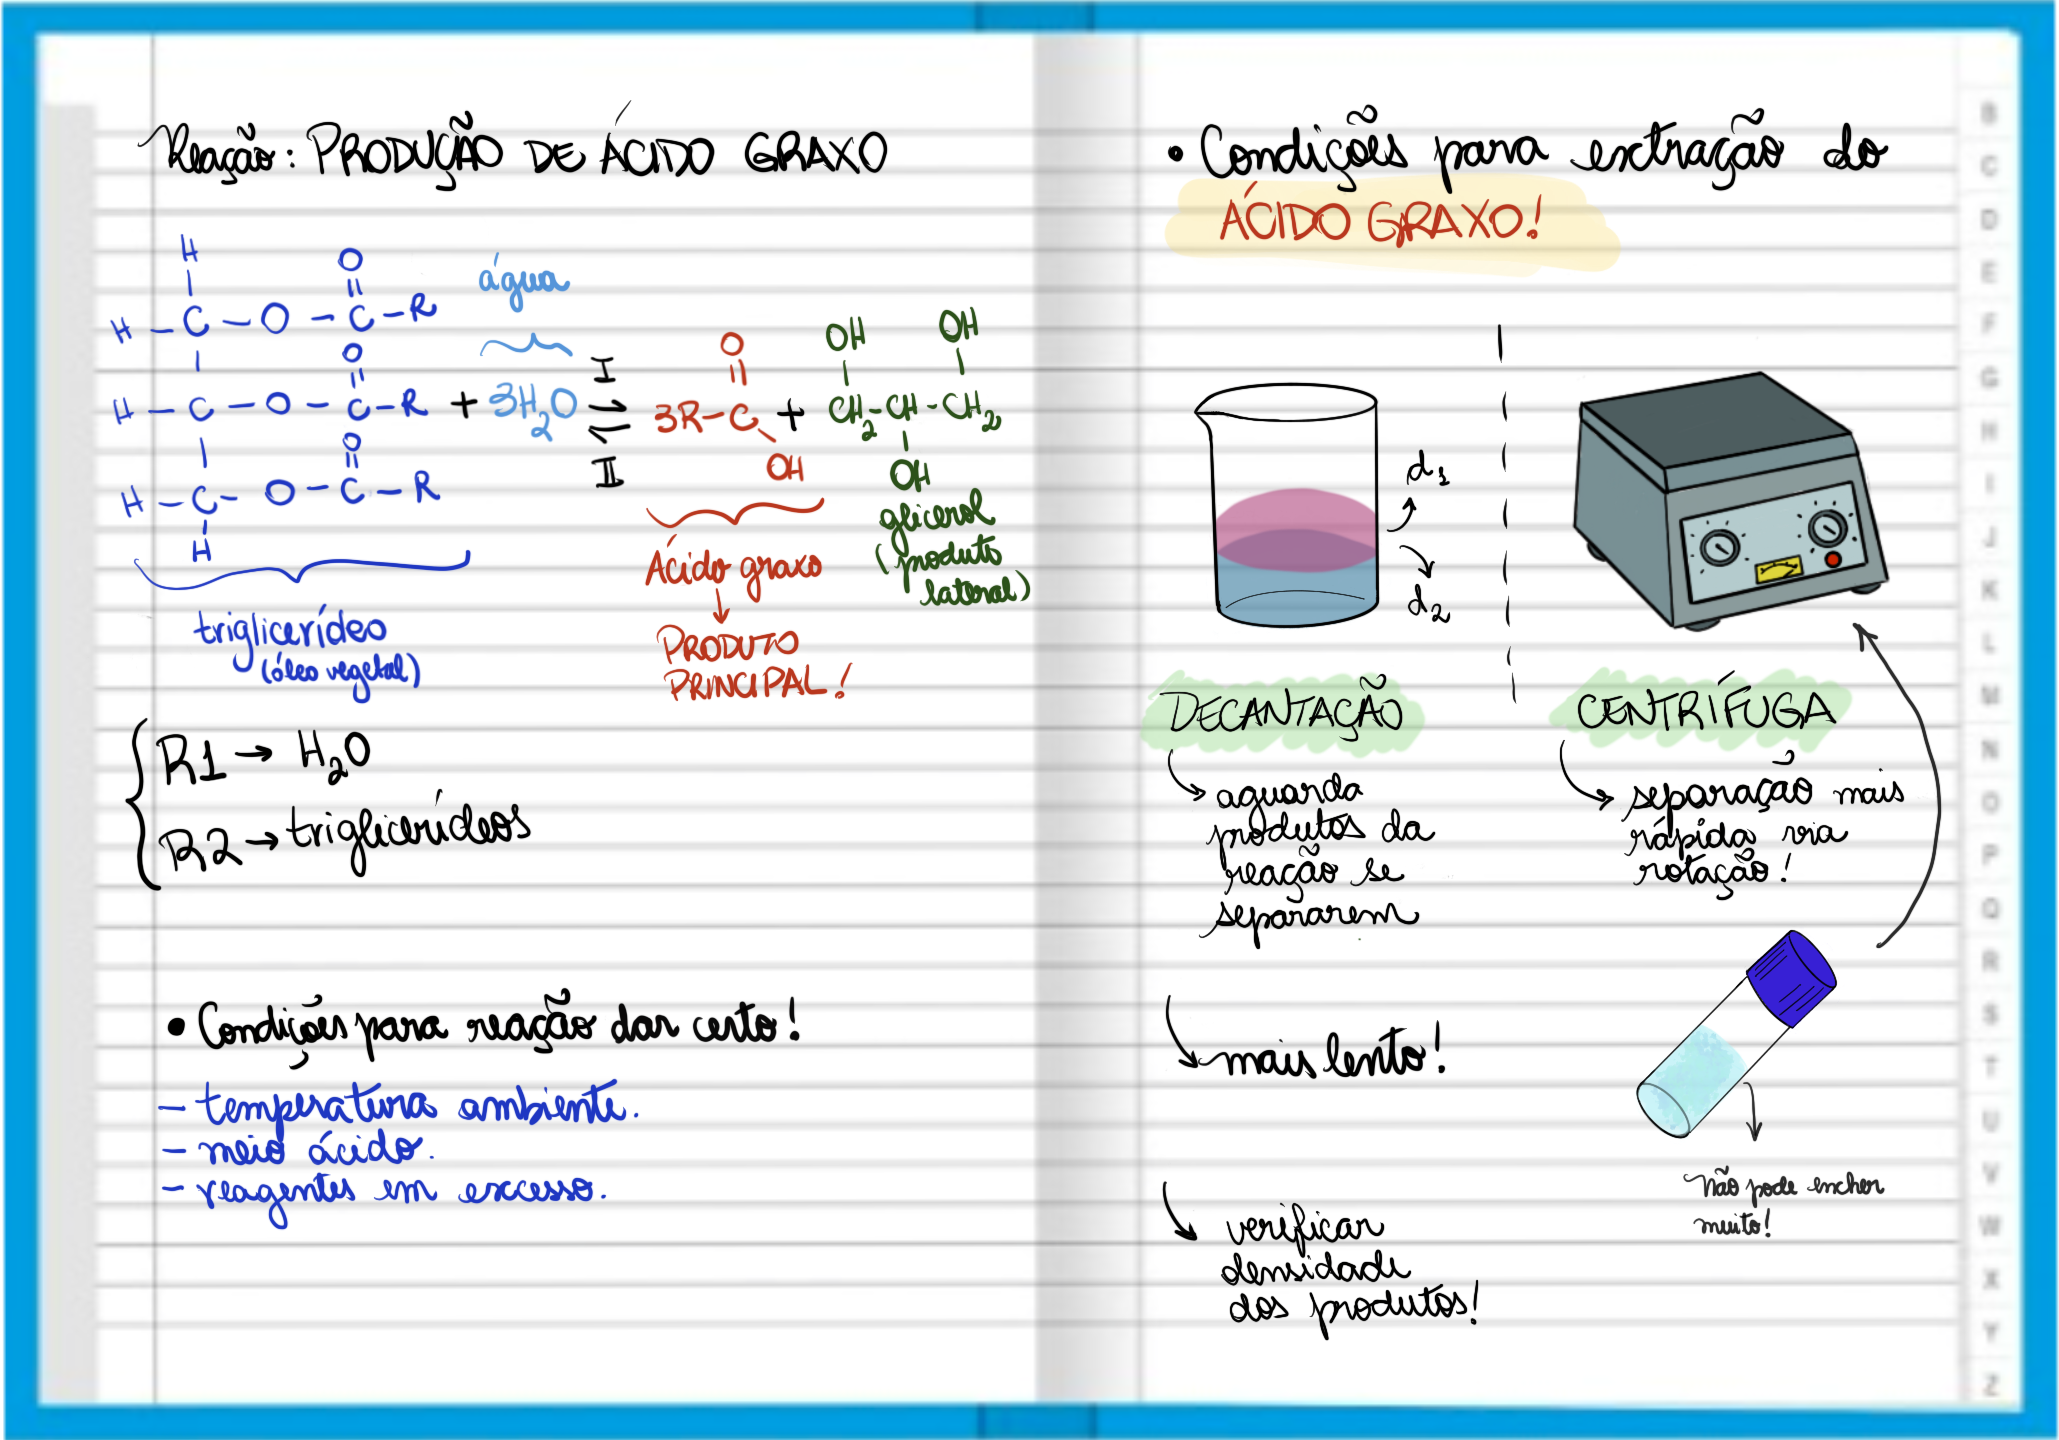 Reação: PRODUÇÃO DE ÁCIDO GRAXO
H
O
água
H - C - O - C - R
O
OH OH
I
O
H - C - O - C - R + 3H2O ⇌ 3R - C + CH2 - CH - CH2
O
II
OH
OH
H - C - O - C - R
H
glicerol
(produto
lateral)
Ácido graxo
↓
PRODUTO
PRINCIPAL!
triglicerídeo
(óleo vegetal)
R1 → H2O
R2 → triglicerídeos
• Condições para reação dar certo!
- temperatura ambiente.
- meio ácido.
- reagentes em excesso.
• Condições para extração do
ÁCIDO GRAXO!
d1
d2
DECANTAÇÃO
aguarda
produtos da
reação se
separarem
mais lento!
verificar
densidade
dos produtos!
CENTRÍFUGA
separação mais
rápida via
rotação!
Não pode encher
muito!
B
C
D
E
F
G
H
I
J
K
L
M
N
O
P
Q
R
S
T
U
V
W
X
Y
Z